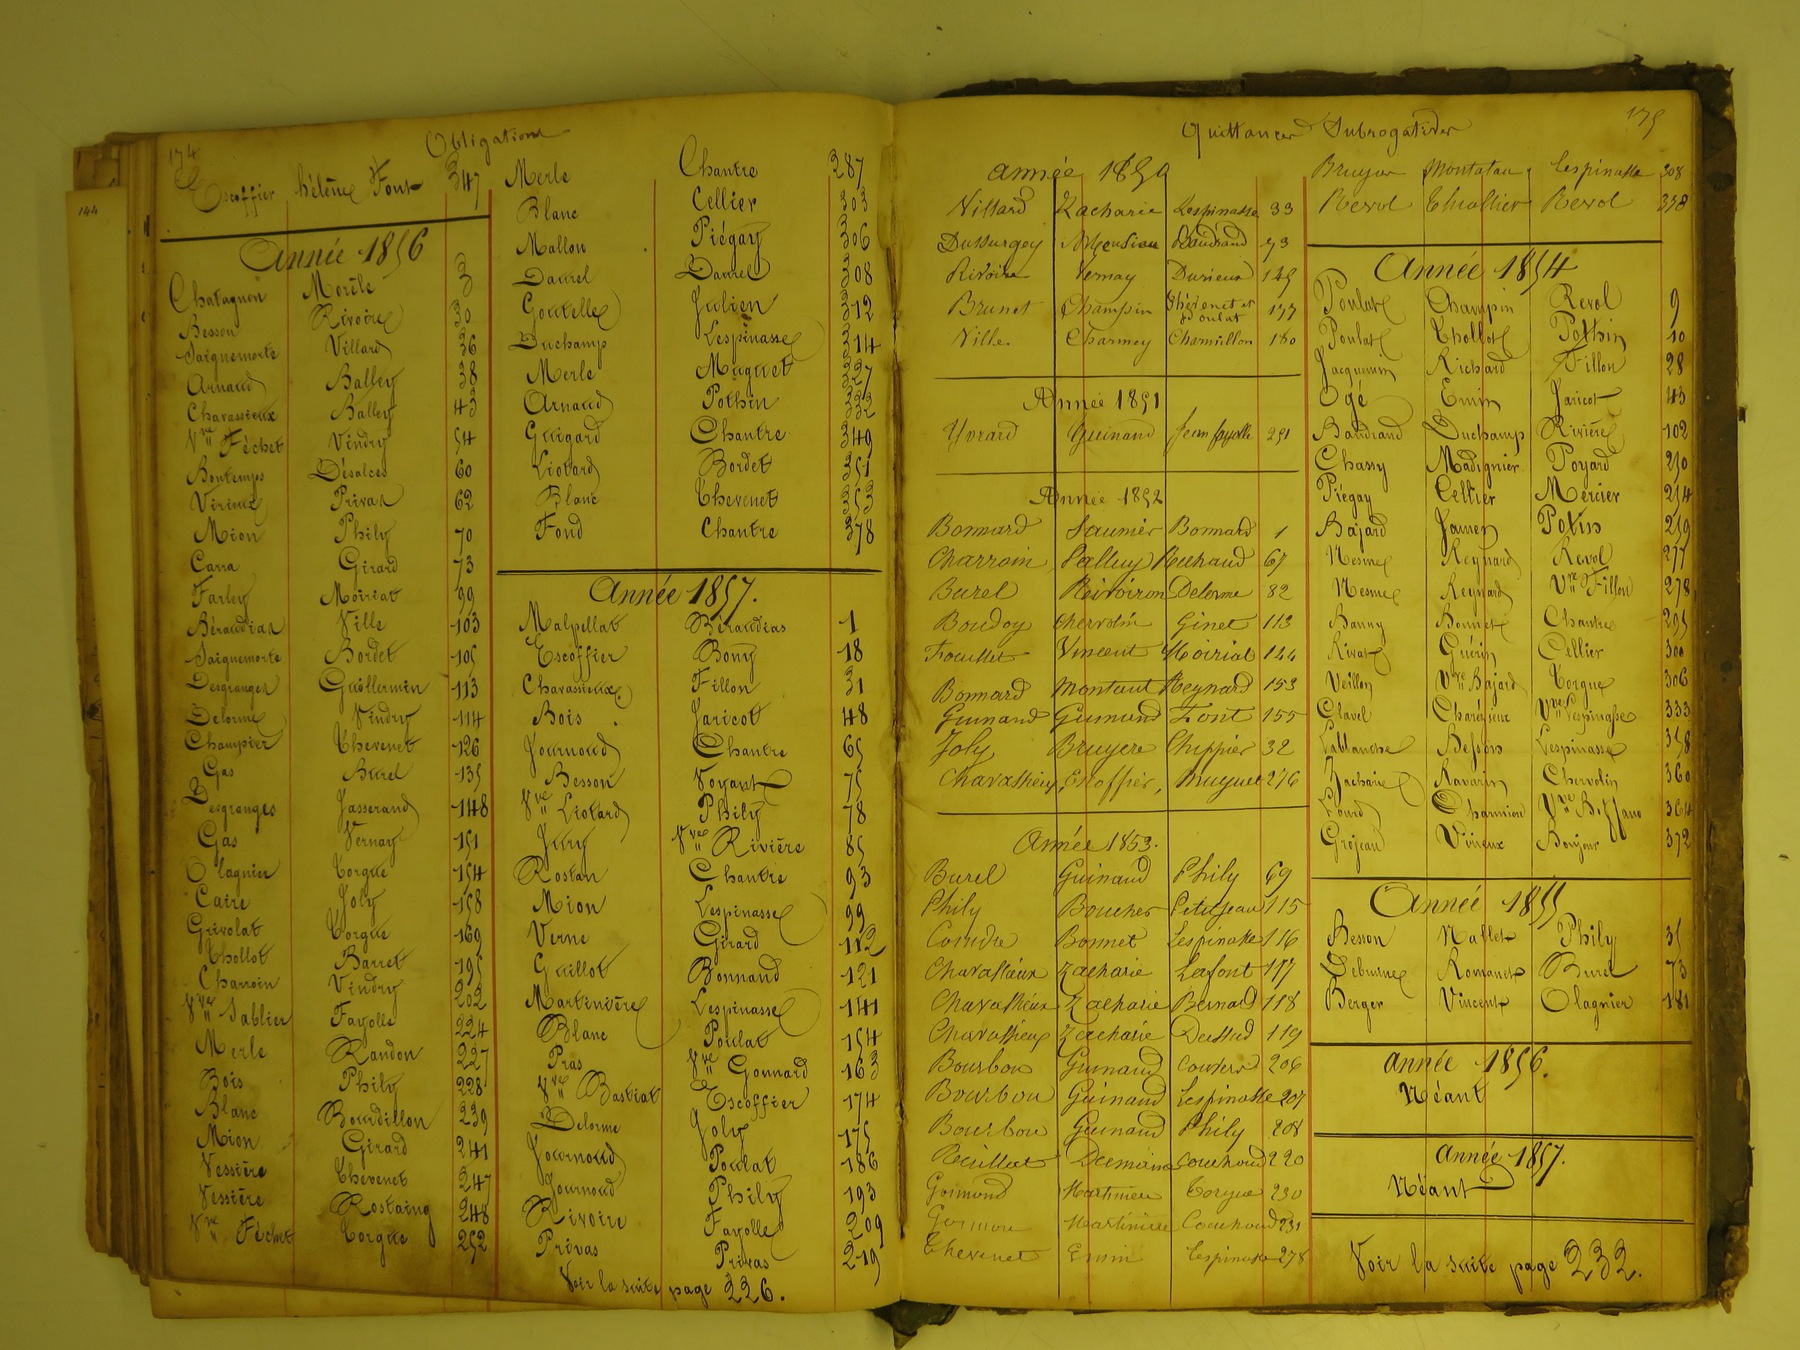 144
174
Obligations
Escoffier hélène Font 347
Année 1856
Chatagnon Morêle 3
Besson Rivoire 30
Saignemorte Villard 36
Arnaud Balley 38
Chavassieux Balley 43
Vve Féchet Vindry 54
Bontemps Désalces 60
Virieux Privas 62
Mion Phily 70
Carra Girard 73
Farley Moiriat 99
Béraudias Ville 103
Saignemorte Bordet 105
Desgranges Guillermin 113
Delorme Vindry 114
Champier Thevenet 126
Gas Burel 135
Desgranges Jasserand 148
Gas Vernay 151
Olagnier Torgue 154
Caire Joly 158
Grivolat Torgue 169
Thollot Barret 195
Charroin Vindry 202
Vve Sablier Fayolle 224
Merle Randon 227
Bois Phily 228
Blanc Bourdillon 239
Mion Girard 241
Vessière Thevenet 247
Vessière Rostaing 248
Vve Féchet Torgue 252
Merle Chantre 287
Blanc Cellier 303
Mallon Piégay 306
Daurel Daurel 308
Goutelle Julien 312
Duchamp Lespinasse 314
Merle Muguet 327
Arnaud Pothin 332
Guigard Chantre 349
Liotard Bordet 351
Blanc Thevenet 353
Fond Chantre 378
Année 1857.
Malpellat Béraudias 1
Escoffier Bony 18
Chavassieux Fillon 31
Bois Jaricot 48
Journoud Chantre 65
Besson Voyant 75
Vve Liotard Phily 78
Jury Vve Rivière 85
Rostan Chantre 93
Mion Lespinasse 99
Verne Girard 112
Guillot Bonnand 121
Martinière Lespinasse 141
Blanc Poulat 154
Pras Vve Gonnard 163
Vve Bastiat Escoffier 174
Delorme Joly 175
Journoud Poulat 186
Journoud Phily 193
Rivoire Fayolle 209
Privas Privas 219
Voir la suite page 226.
175
Quittances Subrogatives
année 1850
Villard Zacharie Lespinasse 33
Dussurgey Baudrand 73
Rivoire Vernay Durieux 145
Brunet Champin Thévenet et Poulat 177
Ville Charmey Charmillon 180
Année 1851
Yvrard Guinand Jean fayolle 251
Année 1852
Bonnard Saunier Bonnard 1
Charroin Salluy Ruchaud 67
Burel Rivoiron Delorme 82
Boudoy Chervolin Ginet 113
Vincent Moiriat 144
Bonnard Montaut Reynard 153
Guinand Guinand Font 155
Joly Bruyere Chippier 32
Chavassieux, Escoffier, Muguet 276
Année 1853.
Burel Guinand Phily 69
Phily Boucher Petitjean 115
Coindre Bonnet Lespinasse 116
Chavassieux Zacharie Lafont 117
Chavassieux Zacharie Bernard 118
Chavassieux Zacharie Dussud 119
Bourbon Guinand 206
Bourbon Guinand Lespinasse 207
Bourbon Guinand Phily 208
Reullet Couchoud 220
Gonnond Martinière Torgue 230
Martinière Couchoud 231
Thevenet Emin Lespinasse 278
Bruyas Lespinasse 308
Revol Thiollier Revol 378
Année 1854
Poulat Champin Revol 9
Poulat Thollot Pothin 10
Jacquemin Richard Fillon 28
Ogé Emin Jaricot 43
Baudrand Duchamp Rivière 102
Chassy Madignier Poyard 250
Piégay Cellier Mercier 254
Bajard James Potin 259
Nesme Reynard Revol 277
Nesme Reynard Vve Fillon 278
Banny Bonnet Chantre 295
Rivat Guérin Cellier 300
Veillon Vve Bajard Torgue 306
Clavel Vve Lespinasse 333
Lablanche Besson Lespinasse 358
Zacharie Ravarin Chervolin 360
364
Grojeand Virieux Bonjour 372
Année 1855
Besson Nallet Phily 35
Debrune Romanet Burel 73
Berger Vincent Olagnier 181
année 1856.
Néant
année 1857.
Néant
Voir la suite page 232.